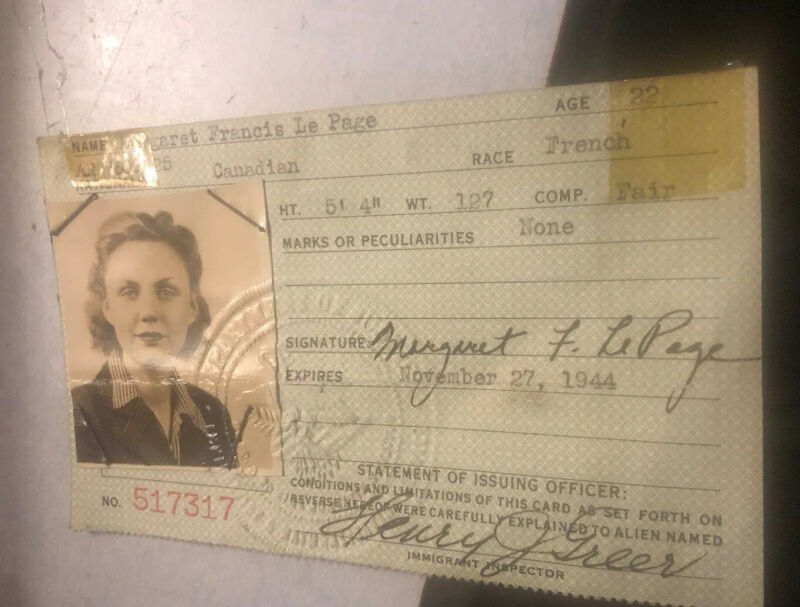 NAME Margaret Francis Le Page AGE 22
Canadian RACE French
HT. 5' 4" WT. 127 COMP. Fair
MARKS OR PECULIARITIES None
SIGNATURE: Margaret F. Le Page
EXPIRES November 27, 1944
STATEMENT OF ISSUING OFFICER:
CONDITIONS AND LIMITATIONS OF THIS CARD AS SET FORTH ON
REVERSE HEREOF WERE CAREFULLY EXPLAINED TO ALIEN NAMED
NO. 517317
Henry J Greer
IMMIGRANT INSPECTOR